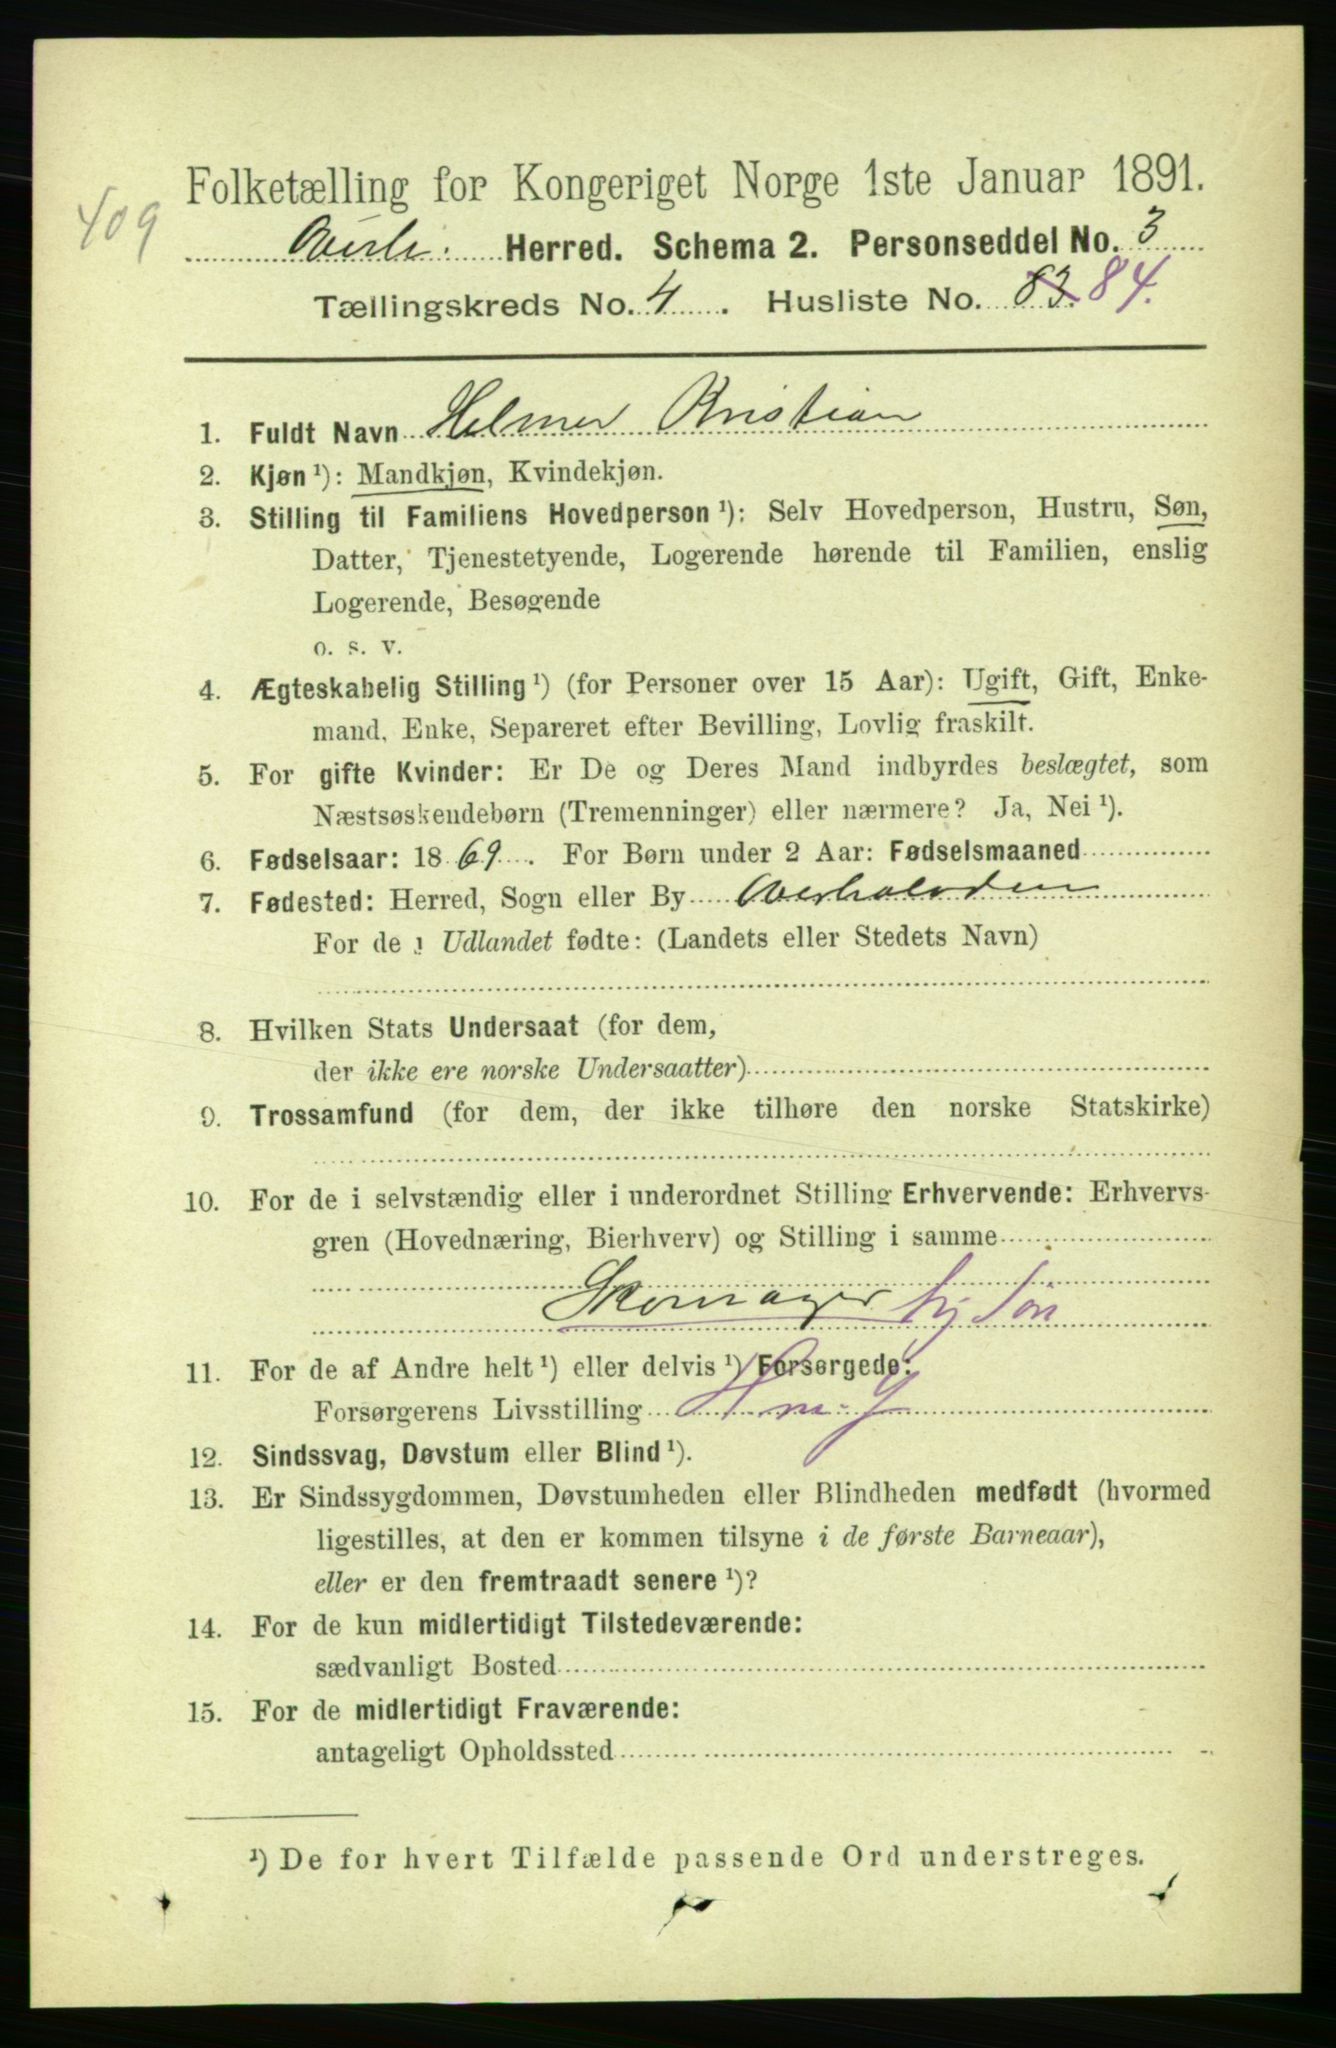 409
Folketælling for Kongeriget Norge 1ste Januar 1891.
Herred. Schema 2. Personseddel No. 3
Tællingskreds No. 4. Husliste No. 83. 84.
1. Fuldt Navn Helmer Kristian
2. Kjøn¹): Mandkjøn, Kvindekjøn.
3. Stilling til Familiens Hovedperson¹): Selv Hovedperson, Hustru, Søn,
Datter, Tjenestetyende, Logerende hørende til Familien, enslig
Logerende, Besøgende
o. s. v.
4. Ægteskabelig Stilling¹) (for Personer over 15 Aar): Ugift, Gift, Enke-
mand, Enke, Separeret efter Bevilling, Lovlig fraskilt.
5. For gifte Kvinder: Er De og Deres Mand indbyrdes beslægtet, som
Næstsøskendebørn (Tremenninger) eller nærmere? Ja, Nei¹).
6. Fødselsaar: 1869. For Børn under 2 Aar: Fødselsmaaned
7. Fødested: Herred, Sogn eller By Overhalvden
For de i Udlandet fødte: (Landets eller Stedets Navn)
8. Hvilken Stats Undersaat (for dem,
der ikke ere norske Undersaatter)
9. Trossamfund (for dem, der ikke tilhøre den norske Statskirke)
10. For de i selvstændig eller i underordnet Stilling Erhvervende: Erhvervs-
gren (Hovednæring, Bierhverv) og Stilling i samme
Skomager hj Søn
11. For de af Andre helt¹) eller delvis¹) Forsørgede:
Forsørgerens Livsstilling
12. Sindssvag, Døvstum eller Blind¹).
13. Er Sindssygdommen, Døvstumheden eller Blindheden medfødt (hvormed
ligestilles, at den er kommen tilsyne i de første Barneaar),
eller er den fremtraadt senere¹)?
14. For de kun midlertidigt Tilstedeværende:
sædvanligt Bosted
15. For de midlertidigt Fraværende:
antageligt Opholdssted
¹) De for hvert Tilfælde passende Ord understreges.